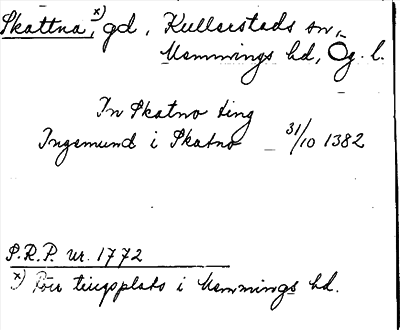 Skattna,x) gd, Kullerstads sn,
Memmings hd, Ög. l.
In Skatno ting
Ingemund i Skatno – 31/10 1382
P.R.P. nr. 1772
x) Förr tingsplats i Memmings hd.